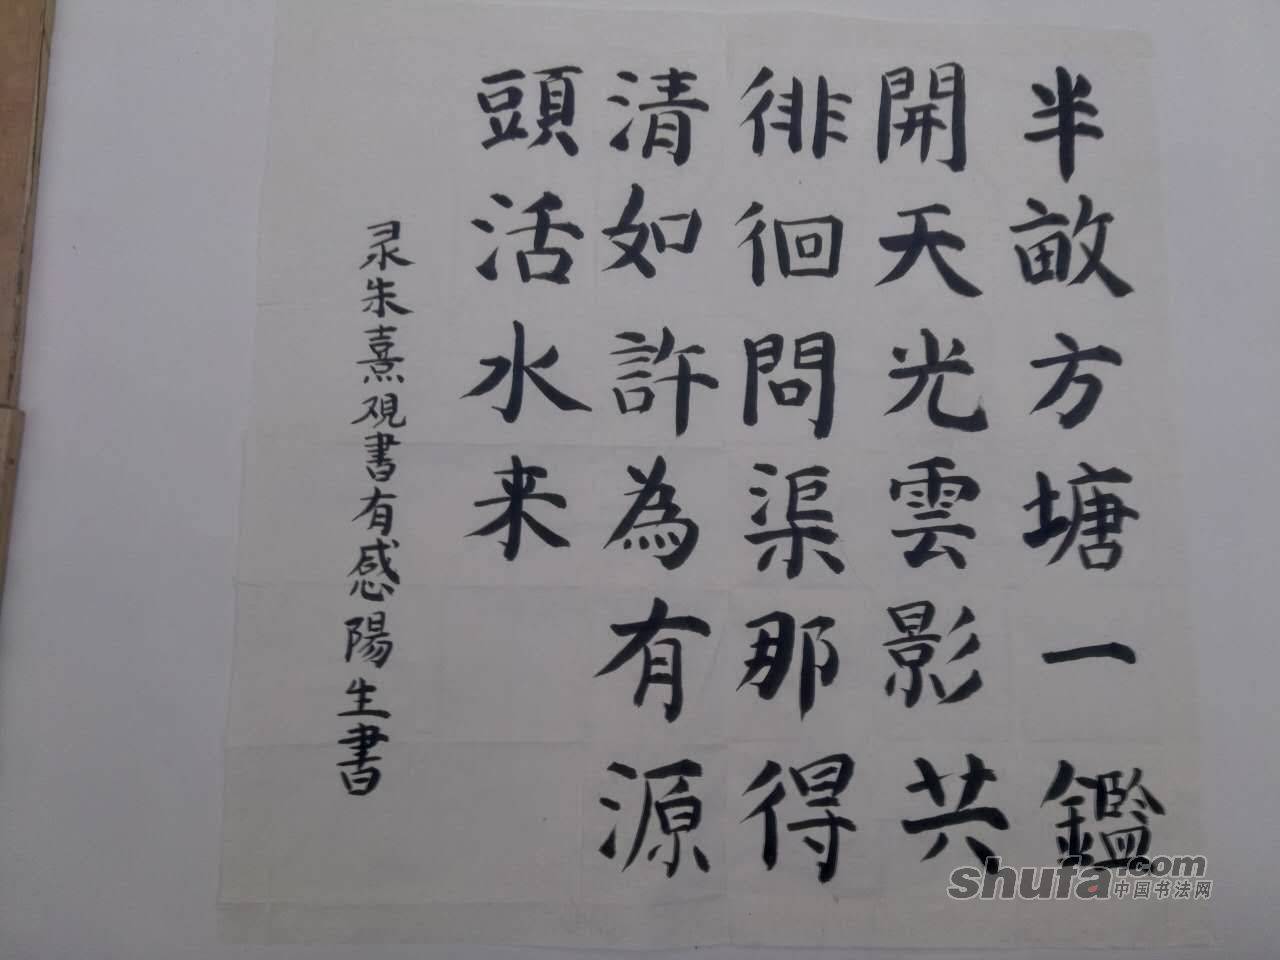 半畝方塘一鑑
開天光雲影共
徘徊問渠那得
清如許為有源
頭活水来
录朱熹观書有感陽生書
shufa.com
中国书法网